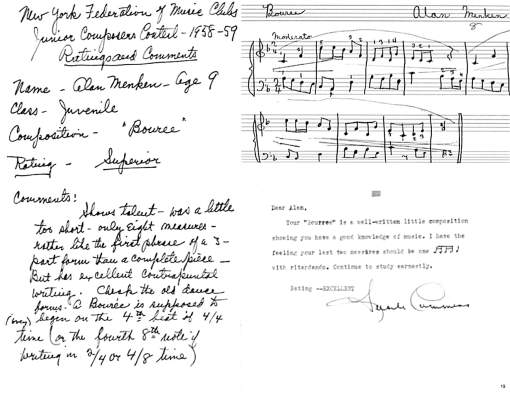 New York Federation of Music Clubs
Junior Composers Contest - 1958-59
Ratings and Comments
Name - Alan Menken - Age 9
Class - Juvenile
Composition - "Bouree"
Rating - Superior
Comments:
Shows talent - was a little
too short - only eight measures -
rather like the first phrase of a 3-
part form than a complete piece -
But has excellent Contrapuntal
writing. Check the old dance
forms. A Bourée is supposed to
(may) begin on the 4th beat of 4/4
time (or the fourth 8th note if
writing in 2/4 or 4/8 time)
Bouree Alan Menken
Moderato
Dear Alan,
Your "Bourree" is a well-written little composition
showing you have a good knowledge of music. I have the
feeling your last two measures should be one
with ritardando. Continue to study earnestly.
Rating --EXCELLENT